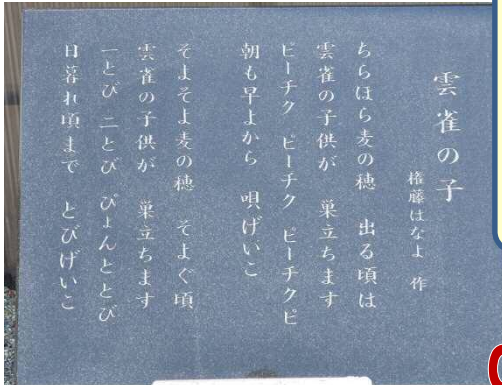 雲雀の子
権藤はなよ 作
ちらほら麦の穂 出る頃は
雲雀の子供が 巣立ちます
ピーチク ピーチク ピーチクピ
朝も早よから 唄げいこ
そよそよ麦の穂 そよぐ頃
雲雀の子供が 巣立ちます
一とび 二とび ぴょんととび
日暮れ頃まで とびげいこ